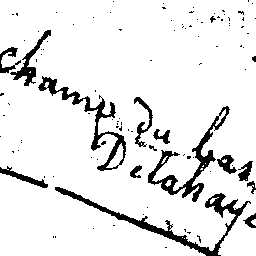 champ du bas
Delahaye